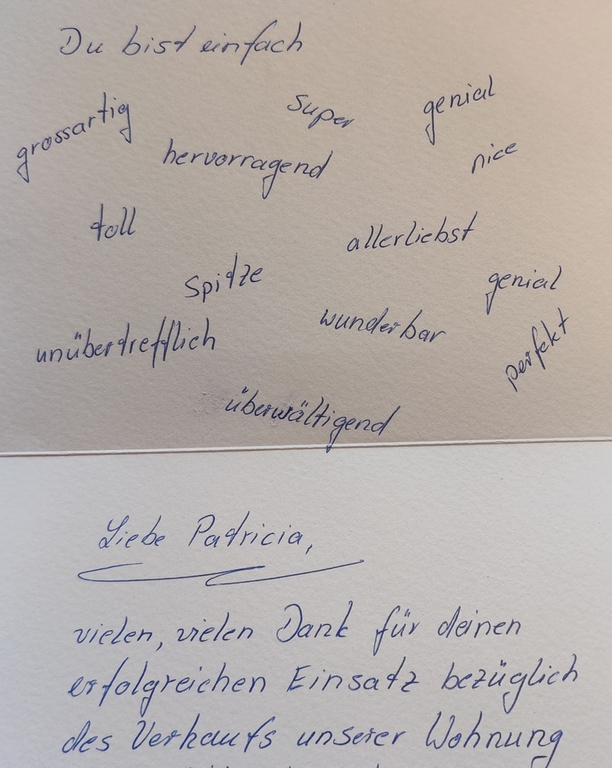 Du bist einfach
grossartig super genial
hervorragend nice
toll allerliebst
Spitze genial
unübertrefflich wunderbar perfekt
überwältigend
Liebe Patricia,
vielen, vielen Dank für deinen
erfolgreichen Einsatz bezüglich
des Verkaufs unserer Wohnung